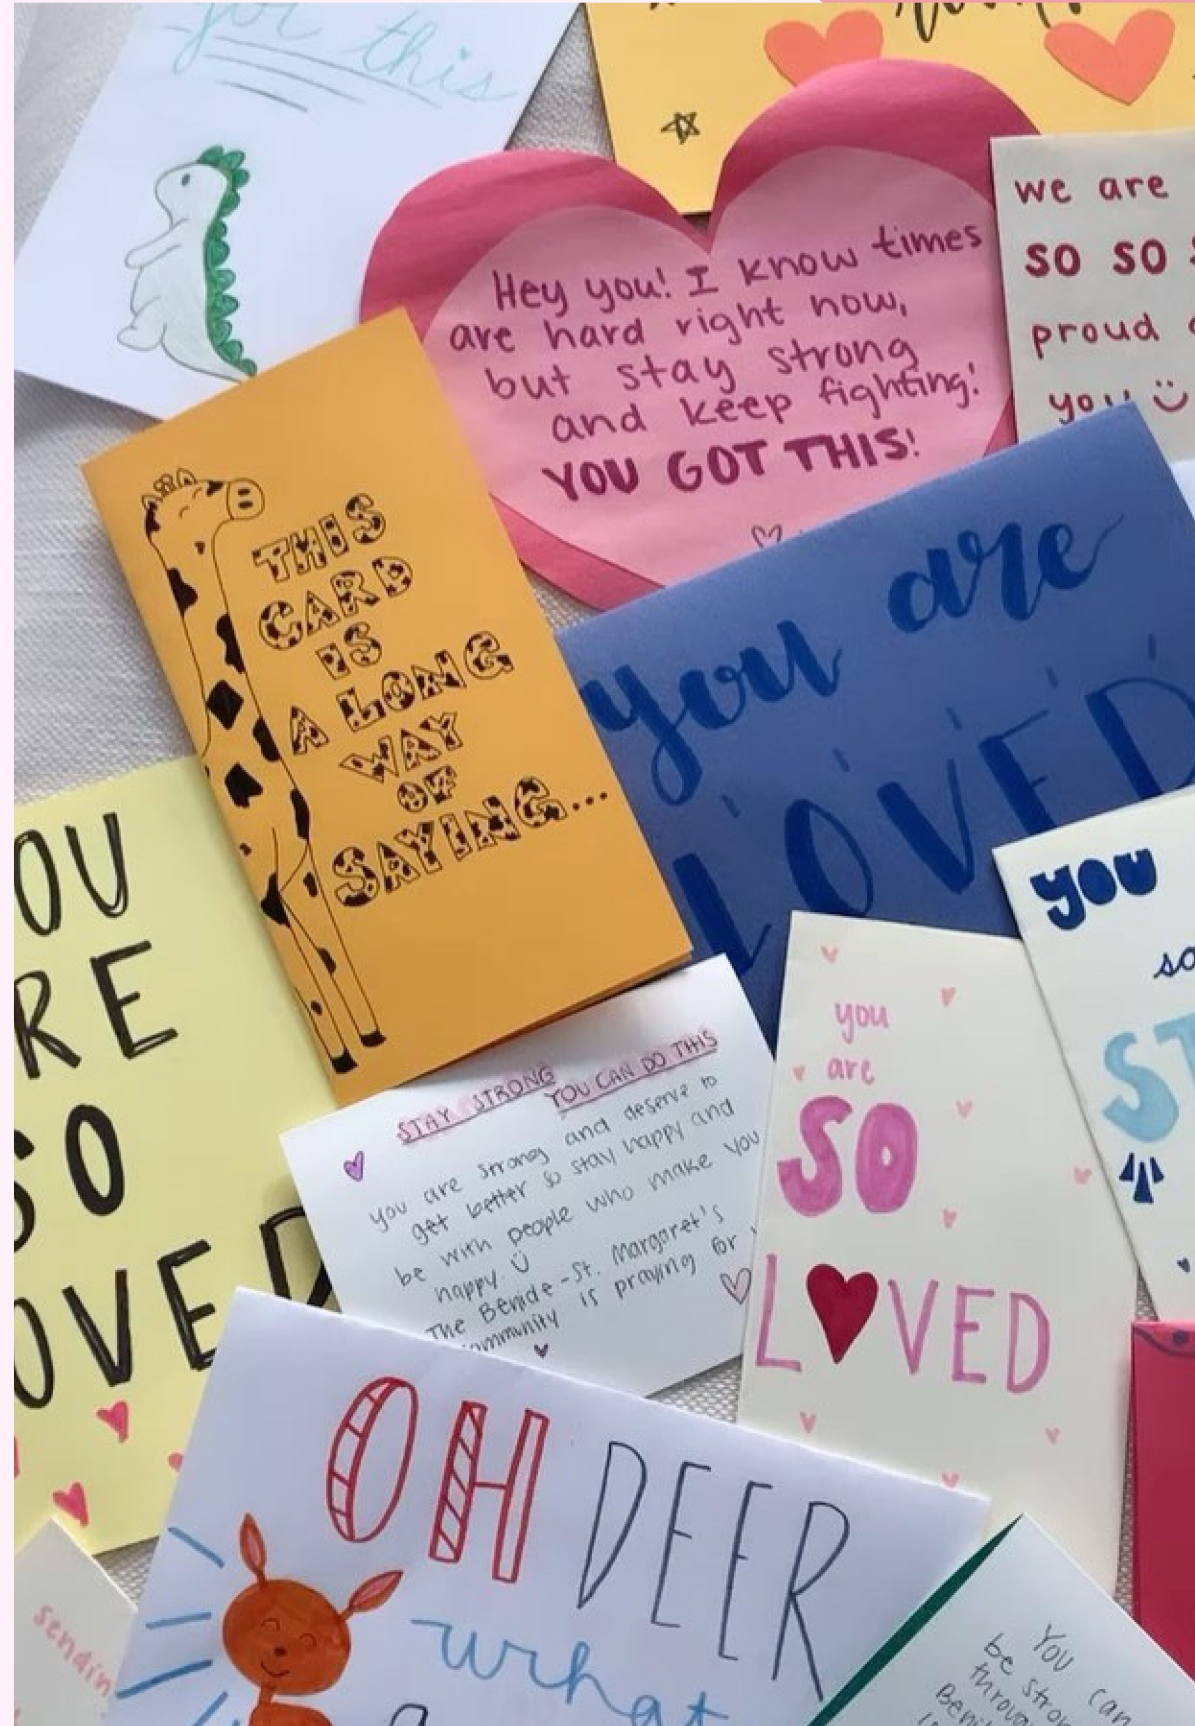 for this
Hey you! I know times
are hard right now,
but stay strong
and keep fighting!
YOU GOT THIS!
we are
SO SO
proud
you
THIS
CARD
IS
A LONG
WAY
OF
SAYING...
you are
LOVED
OU
RE
SO
OVED
STAY STRONG YOU CAN DO THIS
you are strong and deserve to
get better so stay happy and
be with people who make you
happy. Ü
The Benide-St. Margaret's
community is praying for
you
are
SO
LOVED
YOU
so
ST
OH DEER
what
sendin
You can
be stron
throug
Beni